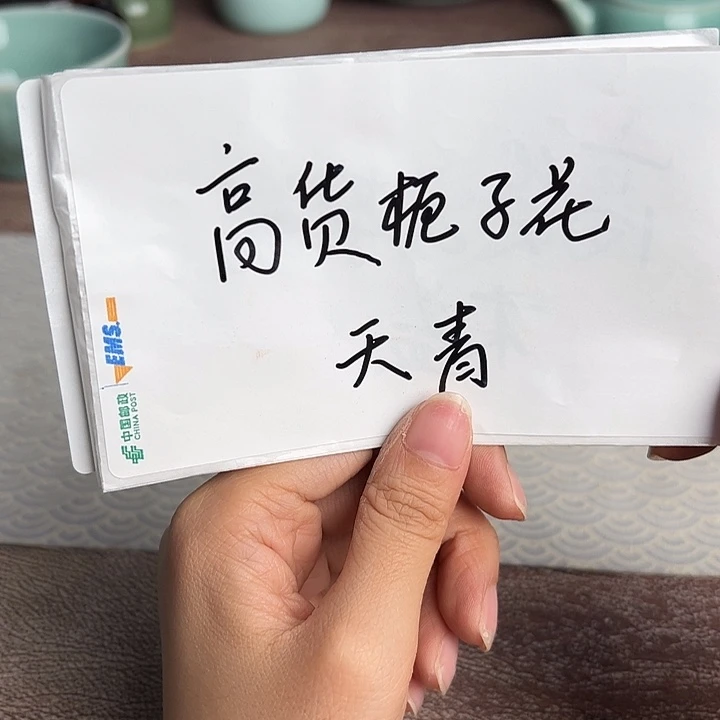 高货栀子花
天青
EMS
中国邮政
CHINA POST